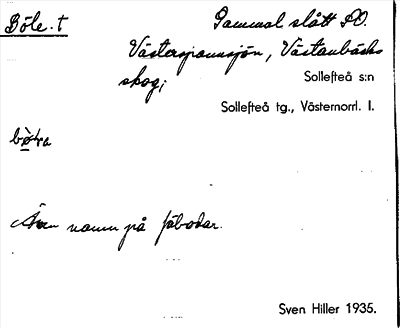 Böle. t Gammal slått SO.
Västersprunsjön, Västanbäcks
skog;
Sollefteå s:n
Sollefteå tg., Västernorrl. l.
Även namn på fäbodar.
Sven Hiller 1935.